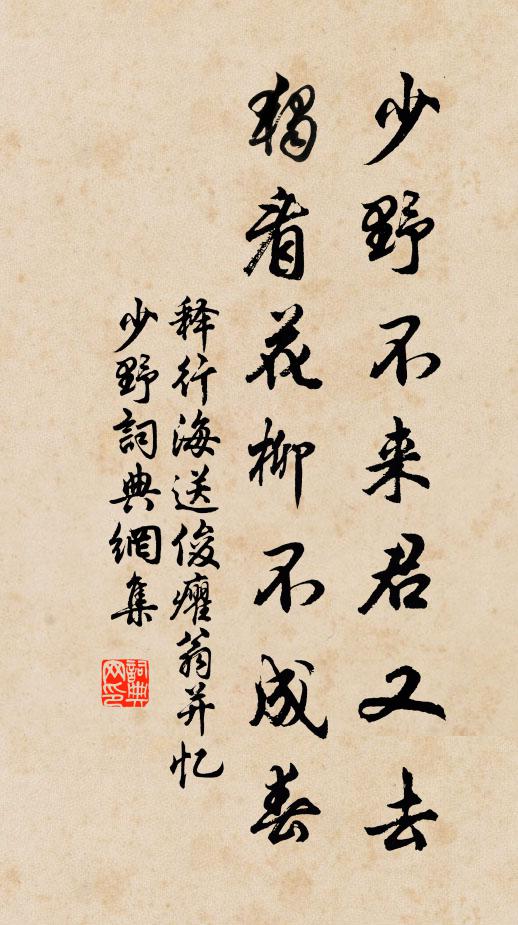 少野不来君又去
独看花柳不成春
释行海送俊癯翁并忆
少野詞典網集
詞典网印